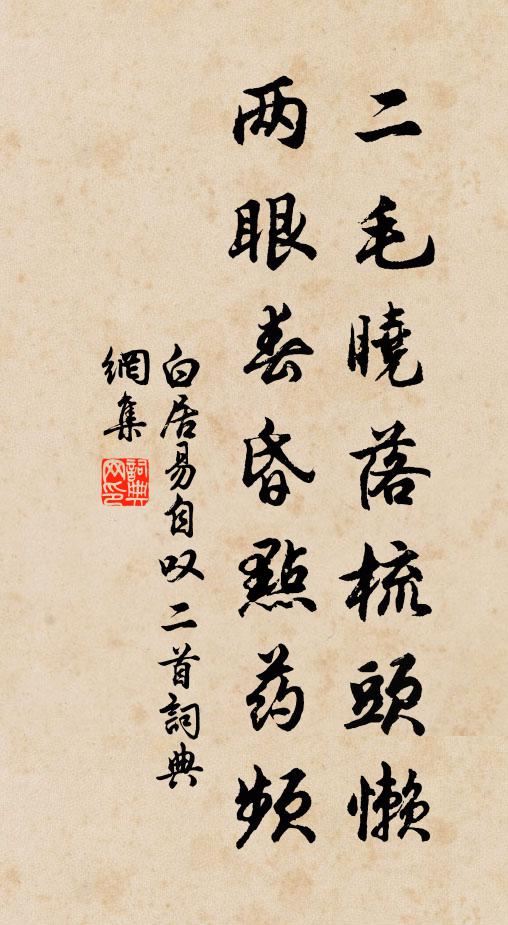 二毛曉落梳頭懶
两眼春昏點药頻
白居易自叹二首詞典
網集
詞典网印